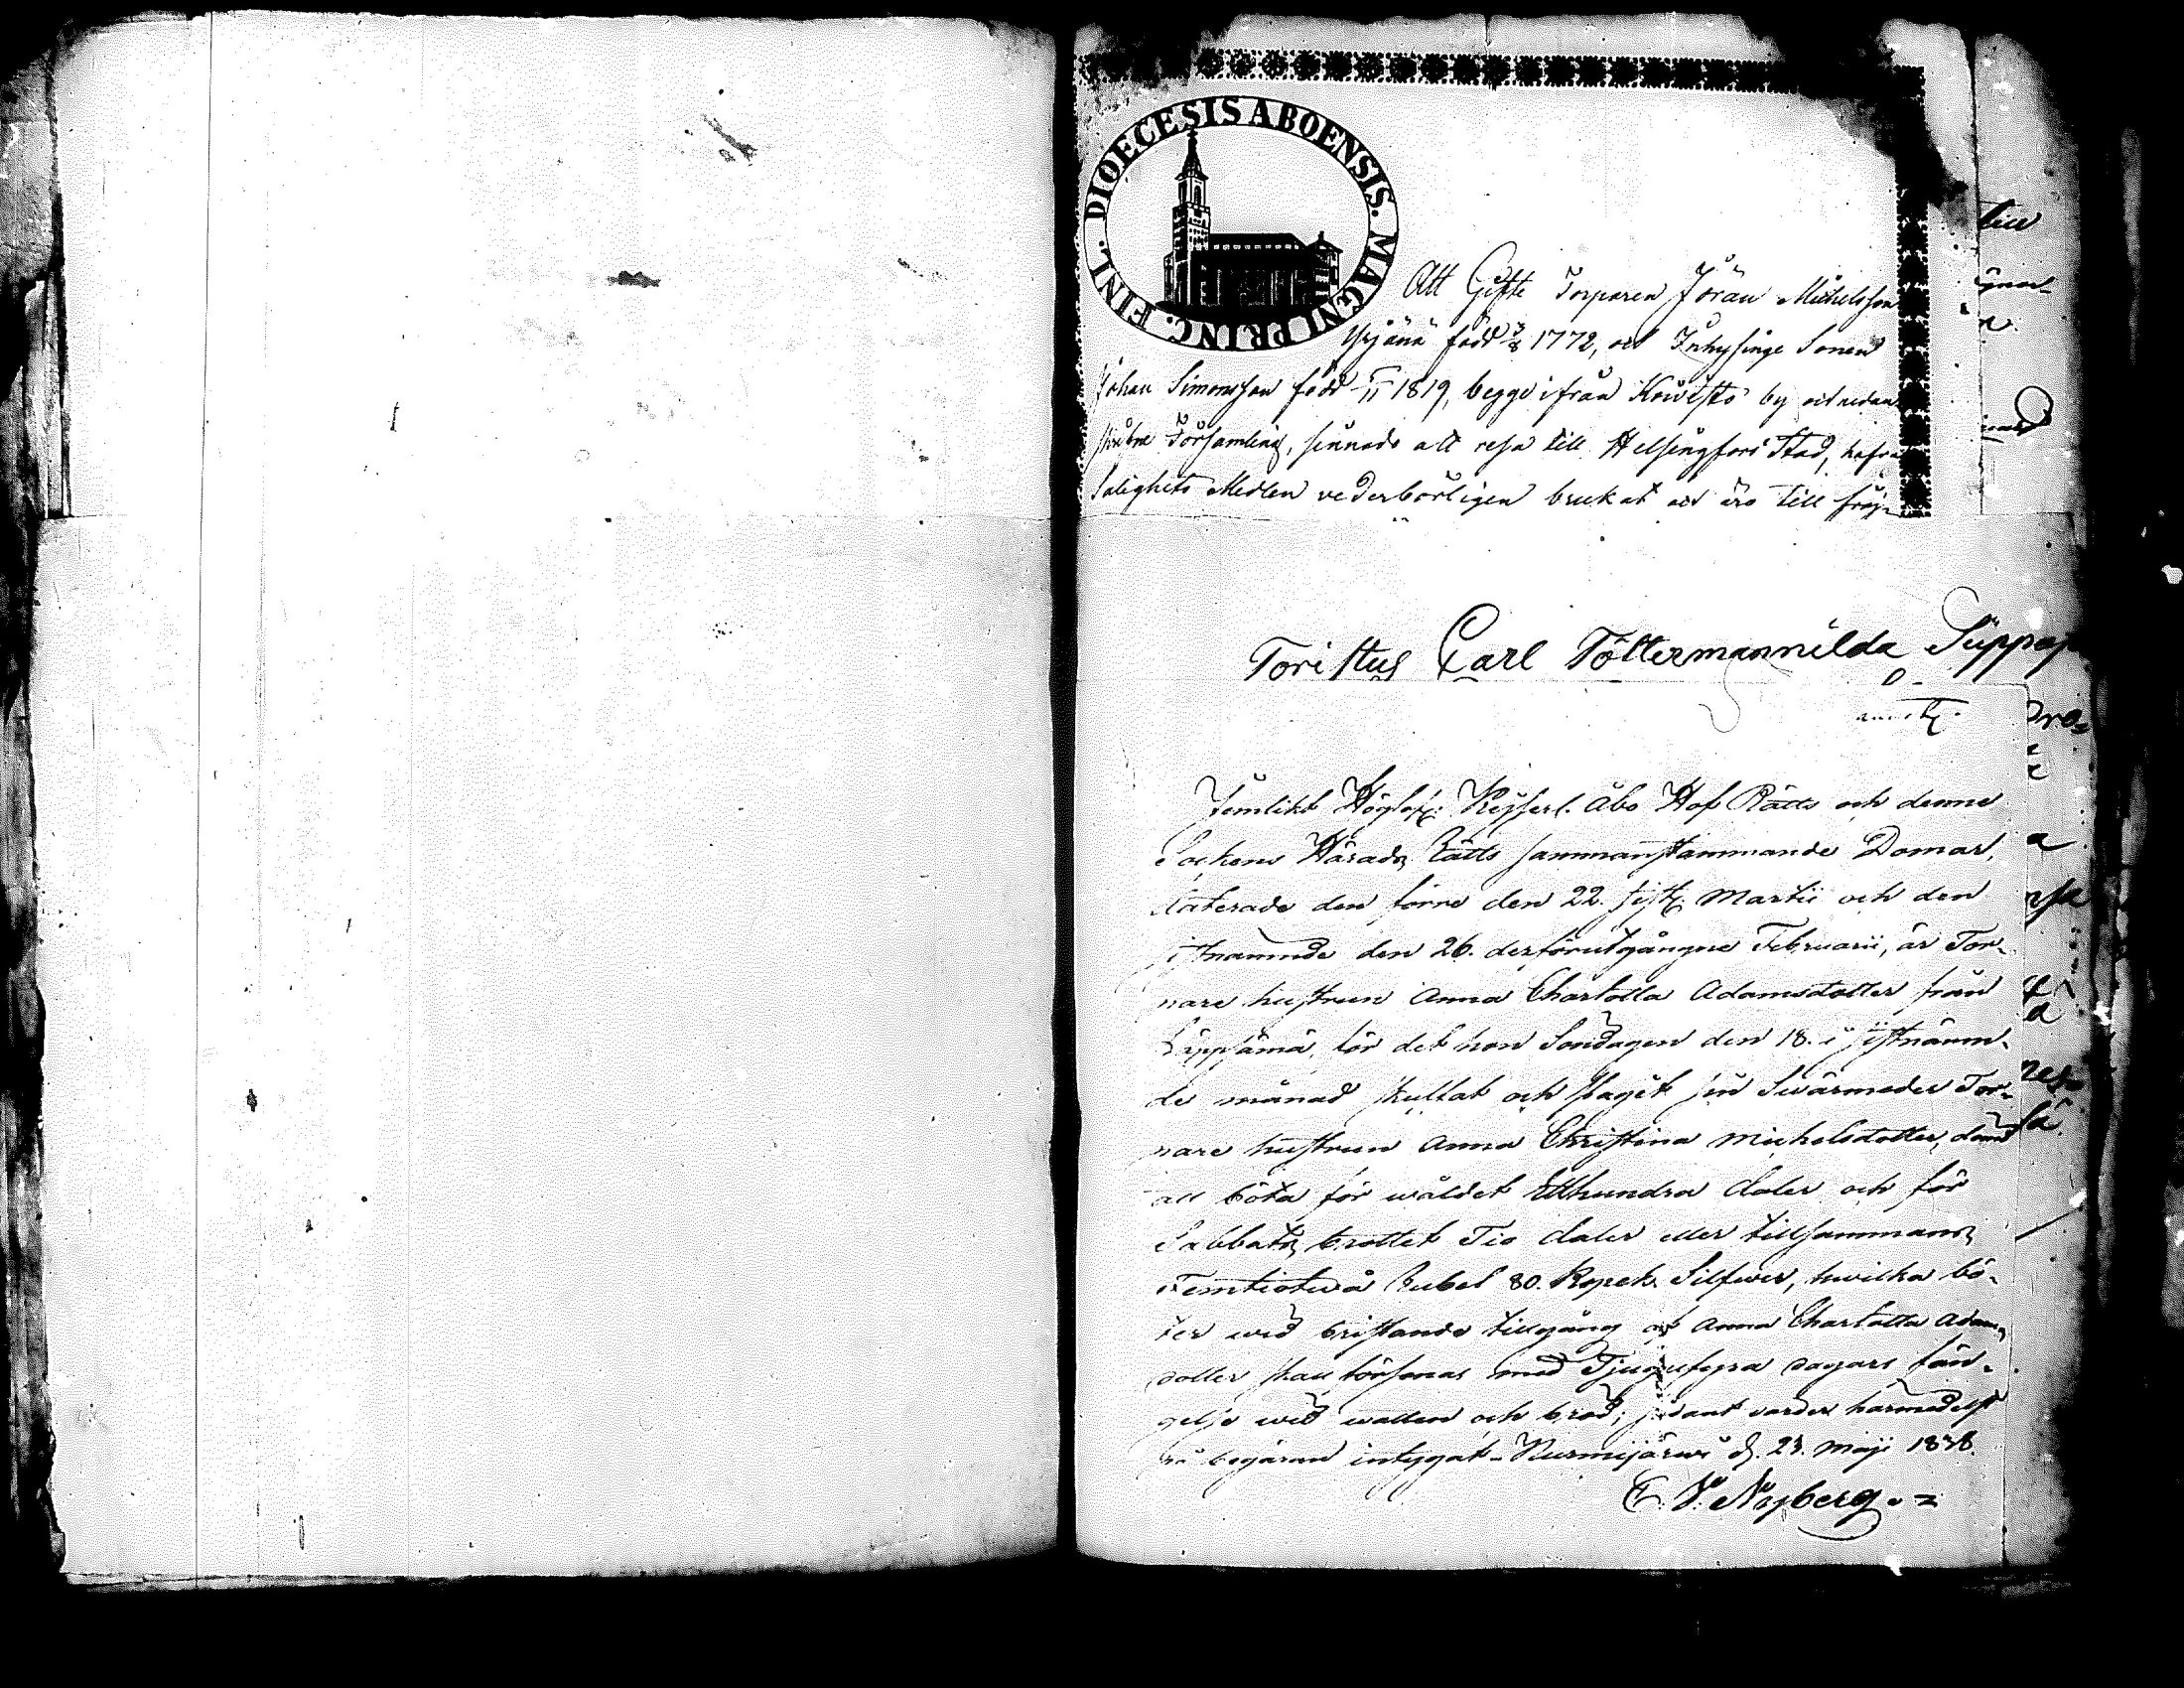 DIOECESIS ABOENSIS. MAGNI PRINC. FINL.
Att Gifte Torparen Jöran Michelsson
Yrjänä född 3/8 1772, och Inhysinge Sonen
Johan Simonsson född 1819, begge ifrån Koivisto by och nedan
skrefne Församling, sinnade att resa till Helsingfors Stad, hafva
Salighets Medlen vederbörligen brukat och äro till fräj-
till
Toristus Carl Töttermannilda
Jemlikt Högl. Kejserl. Åbo Hof Rätts och denne
Sockens Härads Rätts sammanstämmande Domar,
daterade den förre den 22. sistl. Martii och den
sistnämnde den 26. derförutgångne Februarii, är Tor-
pare hustrun Anna Charlotta Adamsdotter från
för det hon Söndagen den 18. i sistnämn-
de månad skuffat och slagit sin Svärmoder Tor-
pare hustrun Anna Christina Michelsdotter, dömd
att böta för wåldet Etthundra daler och för
Sabbats brottet Tio daler eller tillsammans
Femtiotwå Rubel 80. Kopek Silfwer, hwilka bö-
ter wid bristande tillgång af Anna Charlotta Adams
dotter skall försonas med Tjugufyra dagars fän-
gelse wid watten och bröd; sådant warder härmedelst
på begäran intygat. Nurmijärwi d. 23. Maji 1838.
E. W. Nyberg.